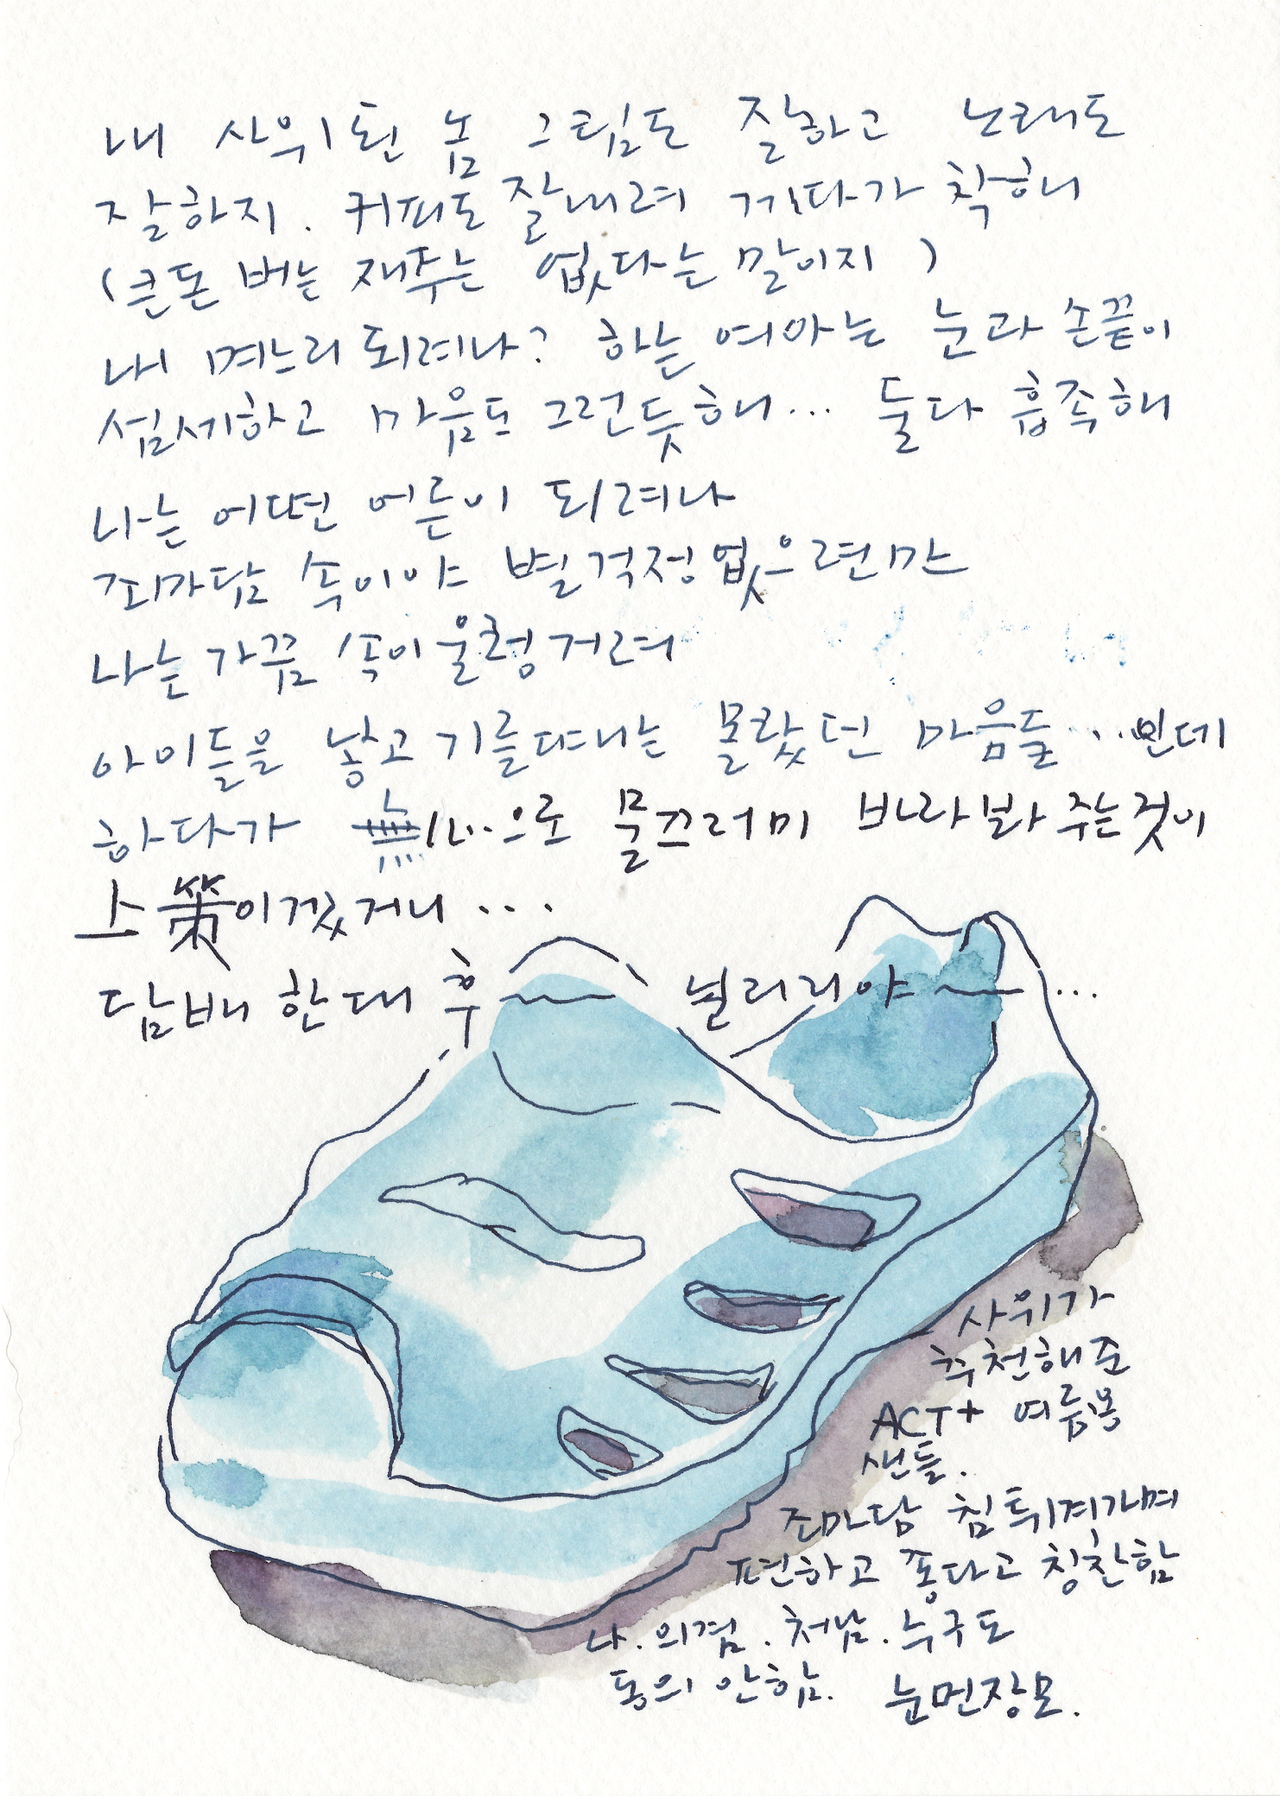 내 사위된 놈 그림도 잘하고 노래도
잘하지. 커피도 잘내려 게다가 착해
(큰돈 버는 재주는 없다는 말이지)
내 며느리 되려나? 하는 여아는 눈과 손끝이
섬세하고 마음도 그런듯해... 둘다 흡족해
나는 어떤 어른이 되려나
조마담 속이야 별걱정없으련만
나는 가끔 속이 울렁거려
아이들을 낳고 기를땐 몰랐던 마음들...인데
하다가 無心..으로 물끄러미 바라봐 주는것이
上策이겠거니...
담배 한대 후~ 닐리리야~...
사위가
추천해준
ACT+ 여름용
샌들.
조마담 침튀겨가며
편하고 좋다고 칭찬함
나. 의겸. 처남. 누구도
동의 안함. 눈먼장모.